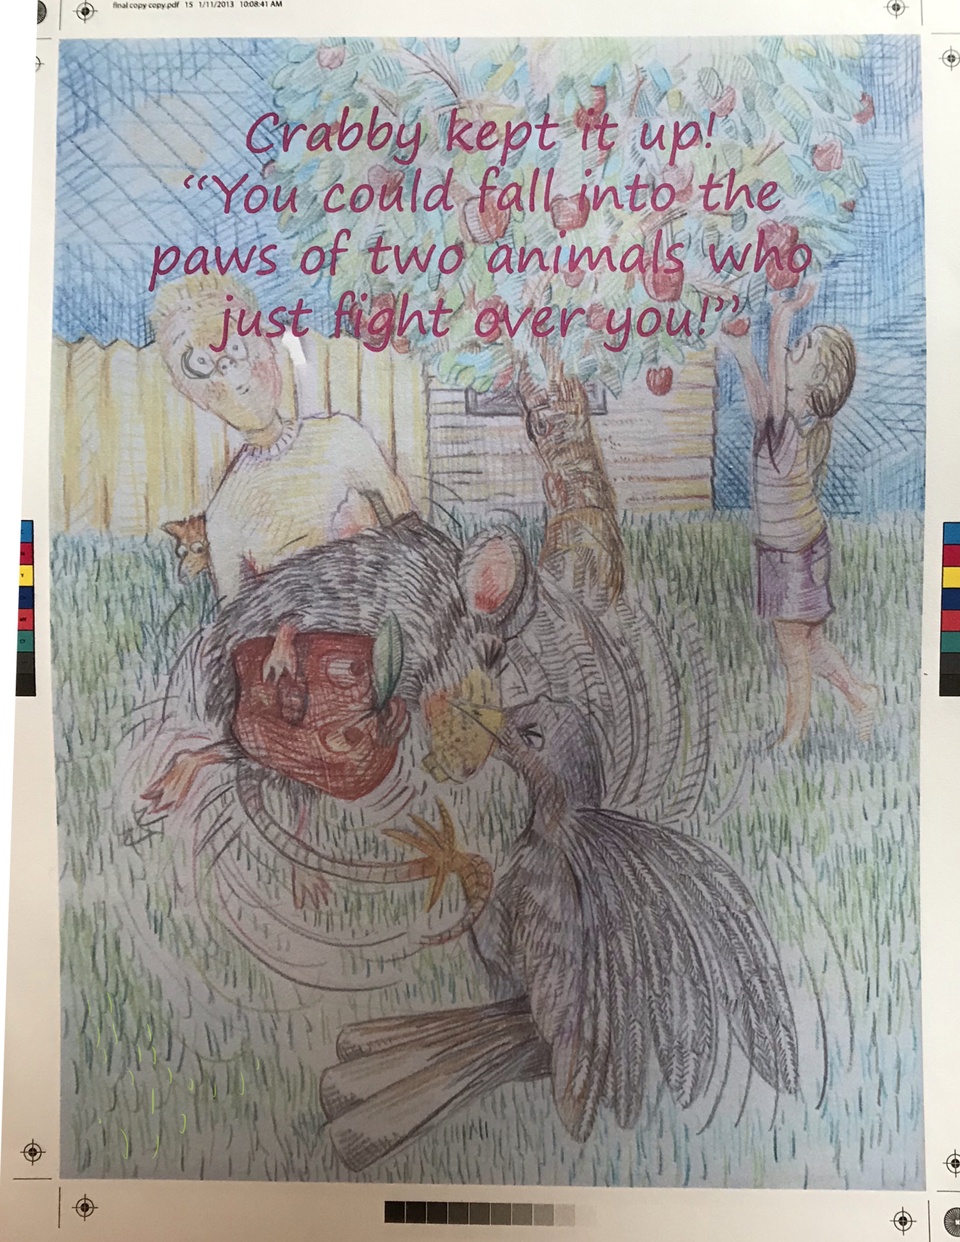 final copy copy.pdf 15 1/11/2013 10:08:41 AM
Crabby kept it up!
“You could fall into the
paws of two animals who
just fight over you!”